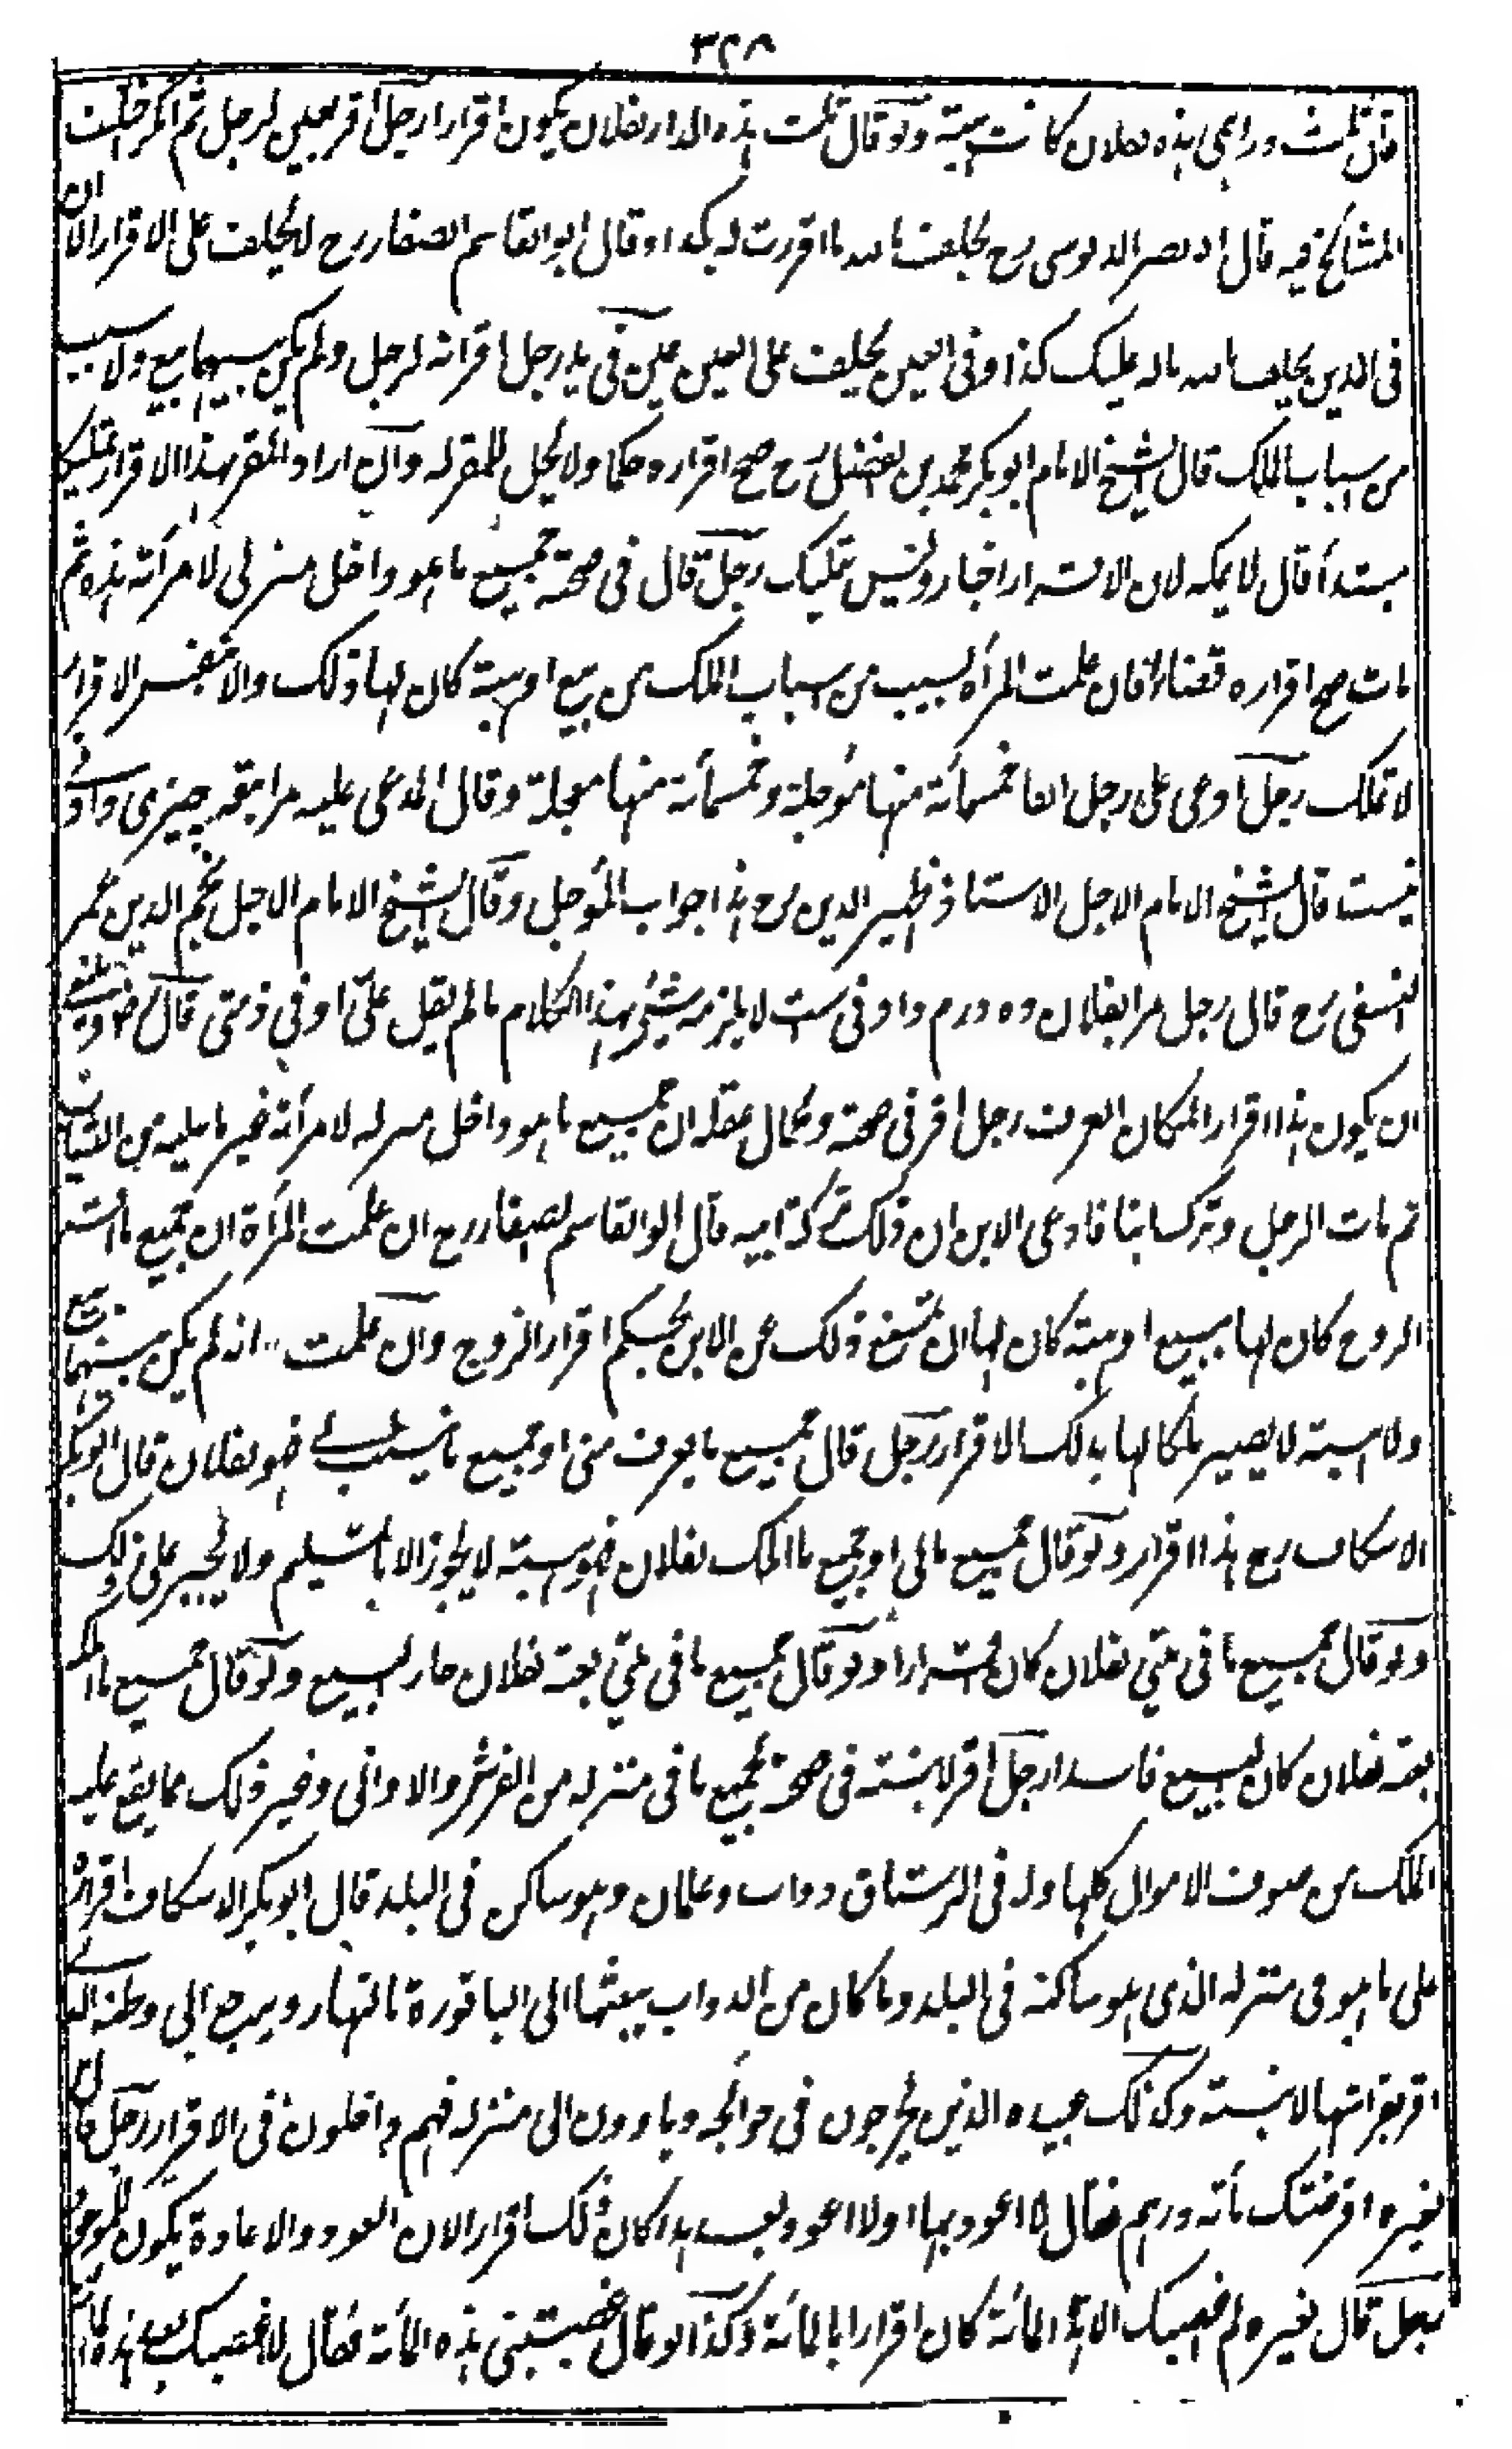 ٣٢٨
قال ثلث دراهمي هذه لفلان كانت هبة ولو قال ثلث هذه الدار لفلان يكون اقرارا رجل اقر بعين لرجل ثم انكر اختلف
المشائخ فيه قال ابو نصر الدبوسي رح يحلف بالله ما اقررت له بكذا وقال ابو القاسم الصفار رح لا يحلف على الاقرار الا ان
في الدين يحلف بالله ماله عليك كذا وفي العين يحلف على العين عين في يد رجل اقر انه لرجل ولم يكن بينهما بيع ولا سبب
من اسباب الملك قال الشيخ الامام ابو بكر محمد بن الفضل رح صح اقراره حكما ولا يحل للمقر له وان اراد المقر بهذا الاقرار تمليكا
مبتدأ قال لا يملكه لان الاقرار اخبار وليس تمليك رجل قال في صحته جميع ما هو داخل منزلي لامرأته هذه ثم
مات صح اقراره قضاء فان علمت المرأة بسبب من اسباب الملك من بيع او هبة كان لها ذلك والا فبنفس الاقرار
لا تملك رجل ادعى على رجل الفا خمسمائة منها مؤجلة وخمسمائة منها معجلة وقال المدعى عليه مرا بتو چيزي دادني
نيست قال الشيخ الامام الاجل الاستاذ ظهير الدين رح هذا جواب المؤجل وقال الشيخ الامام الاجل نجم الدين عمر
النسفي رح قال رجل مرا بفلان ده درم دادني ست لا يلزمه شيء بهذا الكلام ما لم يقل علي او في ذمتي قال رضي وينبغي
ان يكون هذا اقرارا لمكان العرف رجل اقر في صحته وكمال عقله ان جميع ما هو داخل منزله لامرأته غير ما عليه من الثياب
ثم مات الرجل وترك ابنا فادعى الابن ان ذلك تركة ابيه قال ابو القاسم الصفار رح ان علمت المرأة ان جميع ما اقر به
الزوج كان لها ببيع او هبة كان لها ان تمنع ذلك عن الابن بحكم اقرار الزوج وان علمت انه لم يكن بينهما بيع
ولا هبة لا يصير ملكا لها بذلك الاقرار رجل قال جميع ما يعرف مني او جميع ما ينسب الي فهو لفلان قال ابو بكر
الاسكاف رح هذا اقرار ولو قال جميع مالي او جميع ما املك لفلان فهو هبة لا يجوز الا بالتسليم ولا يجبر على ذلك
ولو قال جميع ما في بيتي لفلان كان اقرارا ولو قال جميع ما في بيتي بعته لفلان جاز البيع ولو قال جميع ما املك
بعته لفلان كان البيع فاسدا رجل اقر لابنته في صحته بجميع ما في منزله من الفرش والاواني وغير ذلك مما يقع عليه
الملك من صنوف الاموال كلها وله في الرستاق دواب وغلمان وهو ساكن في البلد قال ابو بكر الاسكاف اقراره
على ما هو في منزله الذي هو ساكنه في البلد وما كان من الدواب يبعثها الى الباقورة بالنهار ويرجع الى وطنه الذي
اقر بقراتها لابنته وكذلك عبيده الذين يخرجون في حوائجه وياوون الى منزله فهم داخلون في الاقرار رجل قال
لغيره اقرضتك مائة درهم فقال لا اعود بها او لا اعود بعد هذا كان ذلك اقرارا لان العود والاعادة يكون للموجود
رجل قال لغيره لم اغصبك الا هذه المائة كان اقرارا بالمائة وكذا لو قال غصبتني هذه المائة فقال لا اغصبك بعد هذه المائة